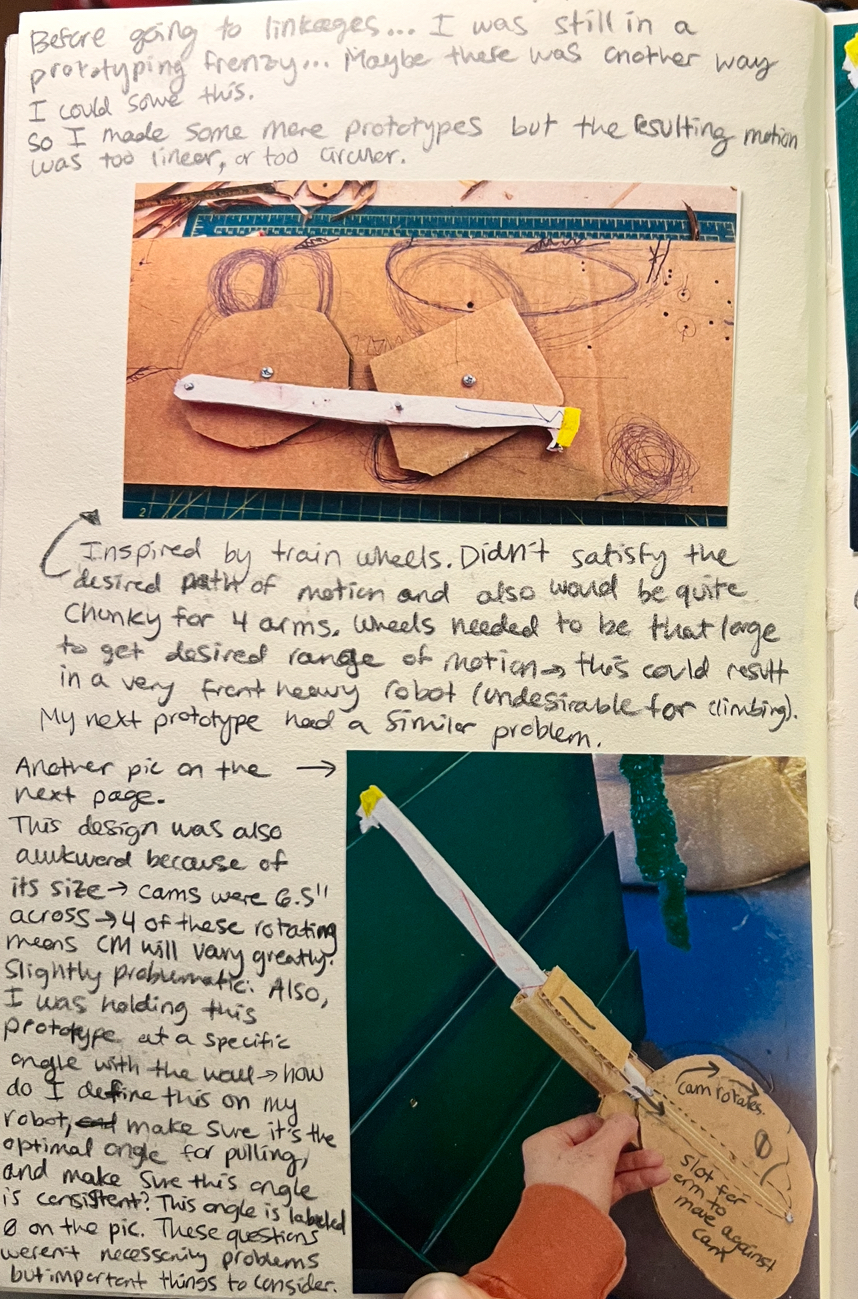 Before going to linkages... I was still in a
prototyping frenzy... Maybe there was another way
I could solve this.
So I made some more prototypes but the resulting motion
was too linear, or too circular.
2
Inspired by train wheels. Didn't satisfy the
desired path of motion and also would be quite
chunky for 4 arms. Wheels needed to be that large
to get desired range of motion → this could result
in a very front heavy robot (undesirable for climbing).
My next prototype had a similar problem.
Another pic on the →
next page.
This design was also
awkward because of
its size → cams were 6.5"
across → 4 of these rotating
means CM will vary greatly.
Slightly problematic. Also,
I was holding this
prototype at a specific
angle with the wall → how
do I define this on my
robot, and make sure it's the
optimal angle for pulling,
and make sure this angle
is consistent? This angle is labeled
θ on the pic. These questions
weren't necessarily problems
but important things to consider.
cam rotates
θ
slot for
arm to
move against
cam